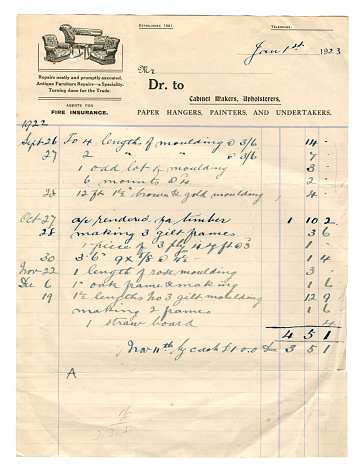 ESTABLISHED 1861.
TELEPHONE
Jan 1st 1923
Repairs neatly and promptly executed.
Antique Furniture Repairs—a Speciality.
Turning done for the Trade.
AGENTS FOR
FIRE INSURANCE.
Mr
Dr. to
Cabinet Makers, Upholsterers,
PAPER HANGERS, PAINTERS, AND UNDERTAKERS.
1922
Sept 26 To 4 length of moulding @ 3/6 14 -
27 2 " " @ 3/6 7 -
1 odd lot of moulding 3 -
6 mounts @ 4 2 -
28 12 ft 1½" brown & gold moulding 4 -
Oct 27 a/c rendered pr timber 1 10 2
28 making 3 gilt frames 3 6
1 piece of 3 ply 4 1 -
30 3' 6" 9 x 5/8 @ 1 4
Nov 22 1 length of rose moulding 3 -
Dec 6 1" oak frame & making 1 6
19 1½ lengths no 3 gilt moulding 12 9
making 2 frames 1 6
1 straw board 4
4 5 1
Nov 11th by cash £1.0.0 Due 3 5 1
A